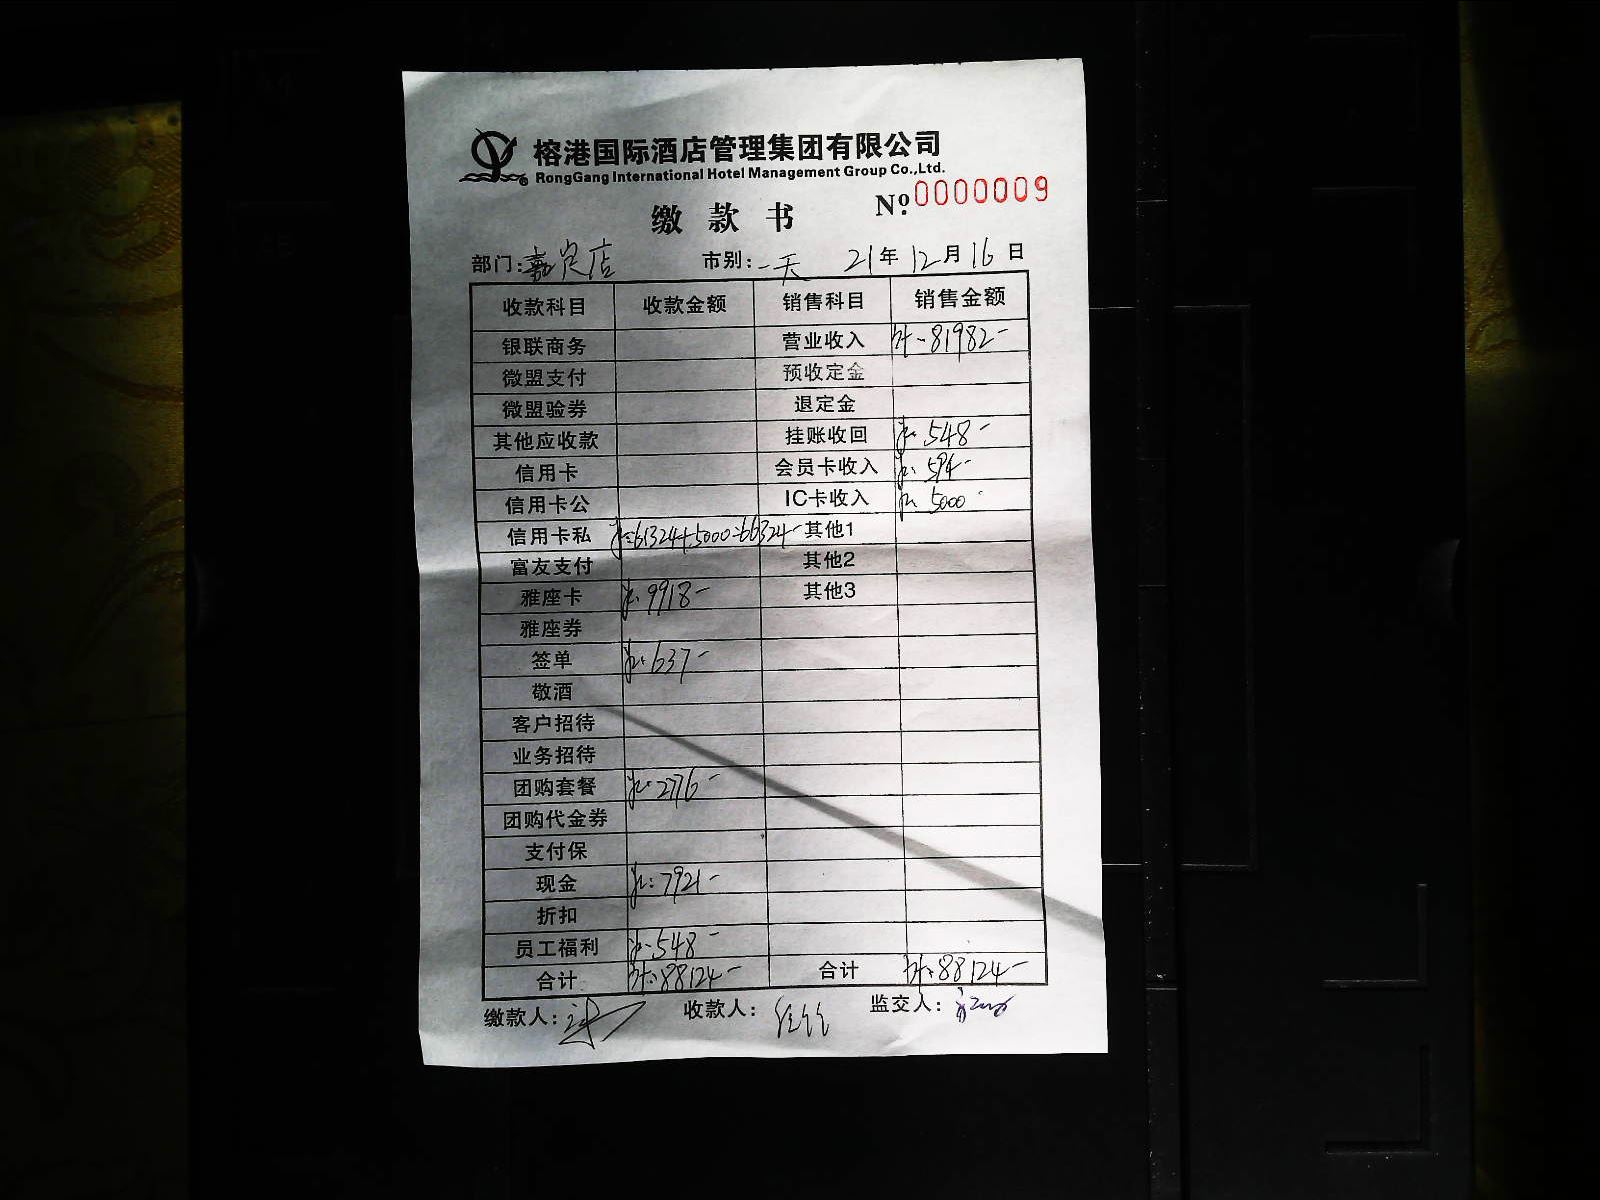 榕港国际酒店管理集团有限公司
RongGang International Hotel Management Group Co.,Ltd.
缴款书 Nº.0000009
部门:嘉定店 市别:一天 21年12月16日
收款科目 收款金额 销售科目 销售金额
银联商务 营业收入 81982-
微盟支付 预收定金
微盟验券 退定金
其他应收款 挂账收回 548-
信用卡 会员卡收入 594-
信用卡公 IC卡收入 5000
信用卡私 61324+5000=66324- 其他1
富友支付 其他2
雅座卡 9918- 其他3
雅座券
签单 637-
敬酒
客户招待
业务招待
团购套餐 2776-
团购代金券
支付保
现金 7921-
折扣
员工福利 548-
合计 88124- 合计 88124-
缴款人: 收款人: 监交人: